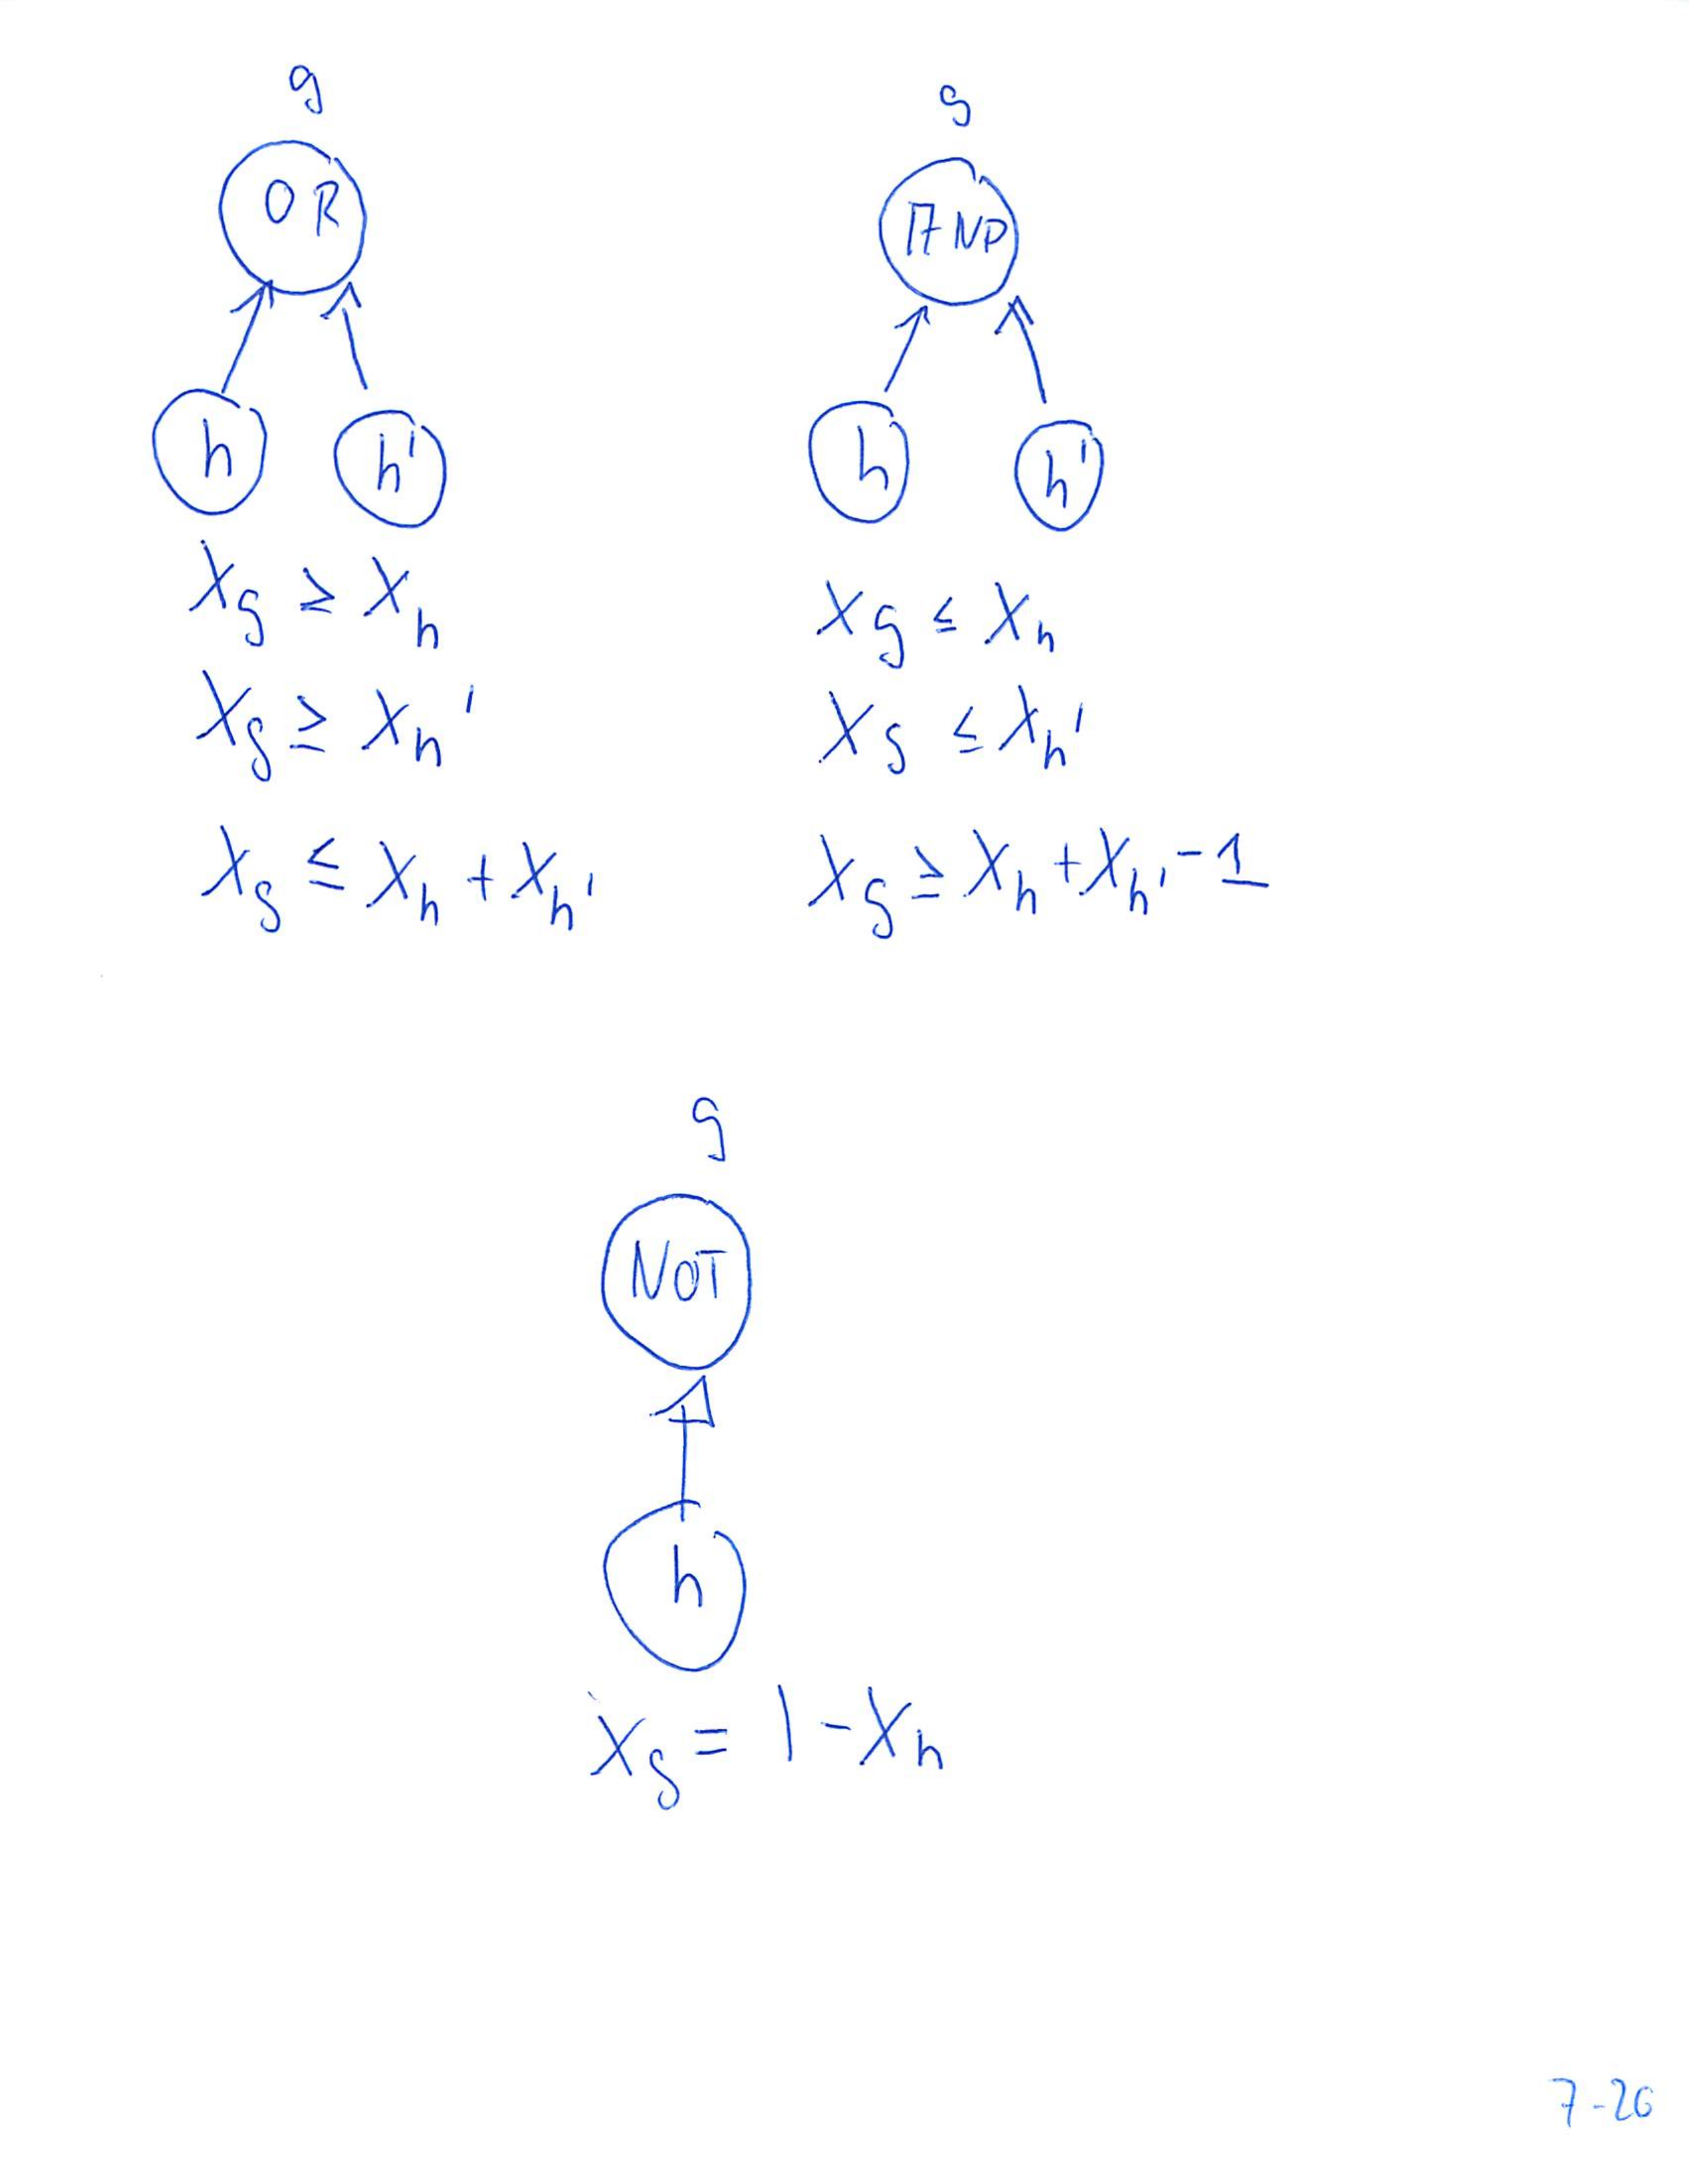 g
OR
h h'
x_g ≥ x_h
x_g ≥ x_h'
x_g ≤ x_h + x_h'
g
AND
h h'
x_g ≤ x_h
x_g ≤ x_h'
x_g ≥ x_h + x_h' - 1
g
NOT
h
x_g = 1 - x_h
7-26